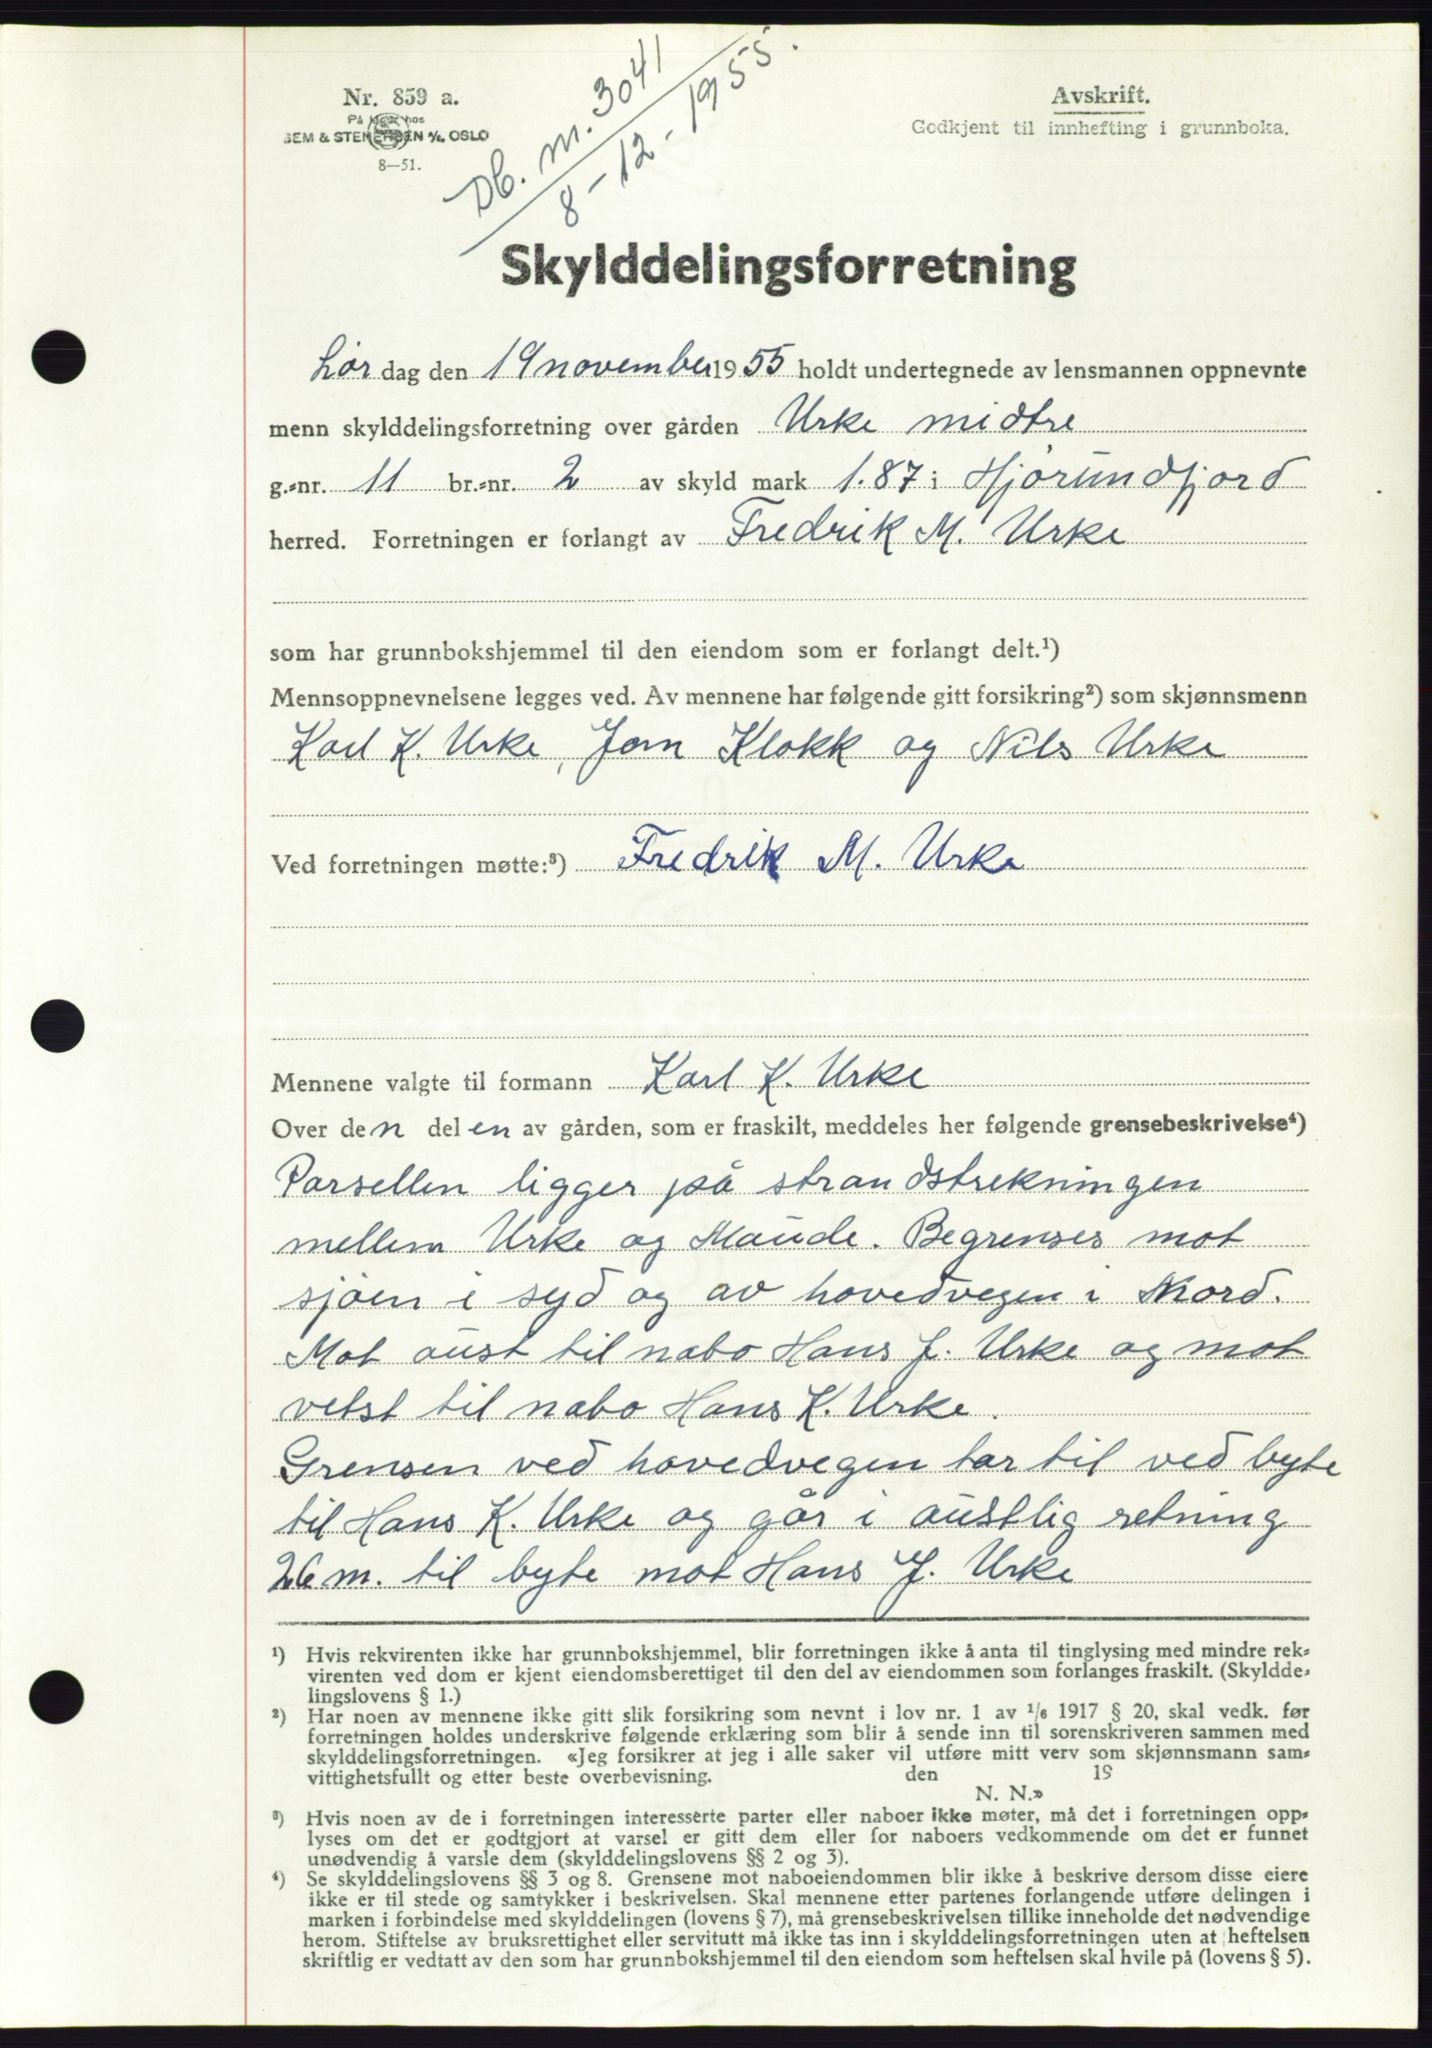 Nr. 859 a.
På lager hos
SEM & STENERSEN A/S, OSLO
8—51.
Db. nr. 3041
8-12-1955.
Avskrift.
Godkjent til innhefting i grunnboka.
Skylddelingsforretning
Lør dag den 19 november 1955 holdt undertegnede av lensmannen oppnevnte
menn skylddelingsforretning over gården Urke midtre
g.=nr. 11 br.=nr. 2 av skyld mark 1.87 i Hjørundfjord
herred. Forretningen er forlangt av Fredrik M. Urke
som har grunnbokshjemmel til den eiendom som er forlangt delt.¹)
Mennsoppnevnelsene legges ved. Av mennene har følgende gitt forsikring²) som skjønnsmenn
Karl K. Urke, Jørn Klokk og Nils Urke
Ved forretningen møtte:³) Fredrik M. Urke
Mennene valgte til formann Karl K. Urke
Over den delen av gården, som er fraskilt, meddeles her følgende grensebeskrivelse⁴)
Parsellen ligger på strandstrekningen
mellem Urke og Maude. Begrenses mot
sjøen i syd og av hovedvegen i Nord.
Mot aust til nabo Hans J. Urke og mot
vetst til nabo Hans K. Urke.
Grensen ved hovedvegen tar til ved byte
til Hans K. Urke og går i austlig retning
26 m. til byte mot Hans J. Urke
¹) Hvis rekvirenten ikke har grunnbokshjemmel, blir forretningen ikke å anta til tinglysing med mindre rek=
virenten ved dom er kjent eiendomsberettiget til den del av eiendommen som forlanges fraskilt. (Skyldde=
lingslovens § 1.)
²) Har noen av mennene ikke gitt slik forsikring som nevnt i lov nr. 1 av ¹/₆ 1917 § 20, skal vedk. før
forretningen holdes underskrive følgende erklæring som blir å sende inn til sorenskriveren sammen med
skylddelingsforretningen. «Jeg forsikrer at jeg i alle saker vil utføre mitt verv som skjønnsmann sam=
vittighetsfullt og etter beste overbevisning. den 19
N. N.»
³) Hvis noen av de i forretningen interesserte parter eller naboer ikke møter, må det i forretningen opp=
lyses om det er godtgjort at varsel er gitt dem eller for naboers vedkommende om det er funnet
unødvendig å varsle dem (skylddelingslovens §§ 2 og 3).
⁴) Se skylddelingslovens §§ 3 og 8. Grensene mot naboeiendommen blir ikke å beskrive dersom disse eiere
ikke er til stede og samtykker i beskrivelsen. Skal mennene etter partenes forlangende utføre delingen i
marken i forbindelse med skylddelingen (lovens § 7), må grensebeskrivelsen tillike inneholde det nødvendige
herom. Stiftelse av bruksrettighet eller servitutt må ikke tas inn i skylddelingsforretningen uten at heftelsen
skriftlig er vedtatt av den som har grunnbokshjemmel til den eiendom som heftelsen skal hvile på (lovens § 5).